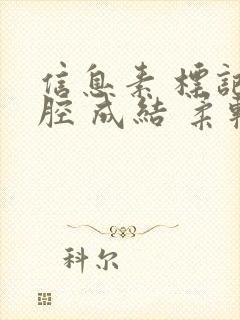 信息素 標記
腔 成結 柔軟
科尔